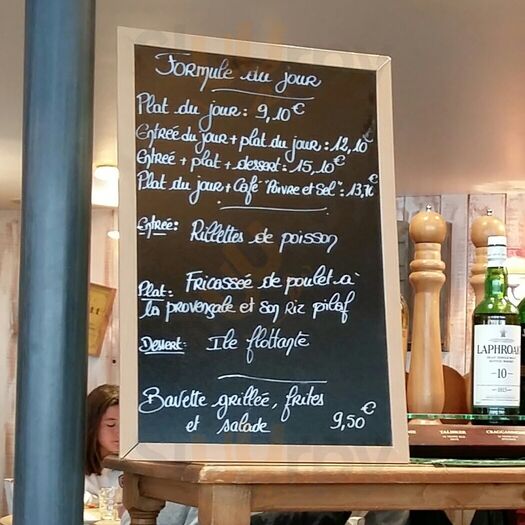 Formule du jour
Plat du jour: 9,10€
Entreé du jour + plat du jour: 12,10€
Entreé + plat + dessert: 15,10€
Plat du jour + Café "Poivre et Sel": 13,70€
Entreé: Rillettes de poisson
Plat: Fricasseé de poulet à
la provençale et son Riz pilaf
Dessert: Ile flottante
Bavette grilleé, frites
et salade 9,50€
LAPHROAIG
10
TALISKER
CRAGGANMORE